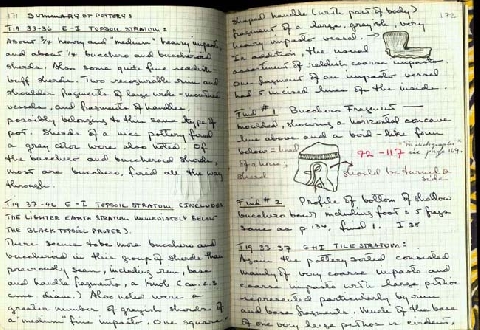 171 SUMMARY OF POTTERY:
T.19 33-36 E-I TOPSOIL STRATUM:
About 3/4 heavy and "medium" heavy impasto,
and about 1/4 bucchero and buccheroid
sherds. Also some quite fine reddish
buff sherds. Two recognizable rim and
shoulder fragments of large wide-mouthed
vessels, and fragments of handles
possibly belonging to this same type of
pot. Sherds of a nice pottery fired
a gray color were also noted. Of
the bucchero and buccheroid sherds,
most are bucchero, fired all the way
through.
T.19 37-46 E-I TOPSOIL STRATUM (INCLUDES
THE LIGHTER EARTH STRATUM IMMEDIATELY BELOW
THE BLACK TOPSOIL PROPER).
There seems to be more bucchero and
buccheroid in this group of sherds than
previously seen, including rim, base
and handle fragments, a knob (ca. 2.5
cms. diam.) Also noted were a
greater number of grayish sherds of
a "medium" fine impasto. One square
172
shaped handle (with part of body)
fragment of a large, grayish, very
heavy impasto vessel →
In addition, the usual
assortment of reddish coarse impasto.
One fragment of an impasto vessel
had 5 incised lines on the inside.
Find # 1 Bucchero Fragment —
moulded, showing a horizontal concave
line above and a bird-like form
below = head
of
sherd
72-117
see p. 169.
should be turned
Find # 2 Profile of bottom of shallow
bucchero bowl including foot
same as p. 136, find 1.
T.19 33-37 E-I TILE STRATUM:
Again the pottery sorted consisted
mainly of very coarse impasto and
coarse impasto with large pithoi
represented particularly by rim
and base fragments. Much of the base
of one very large pithos is evident,